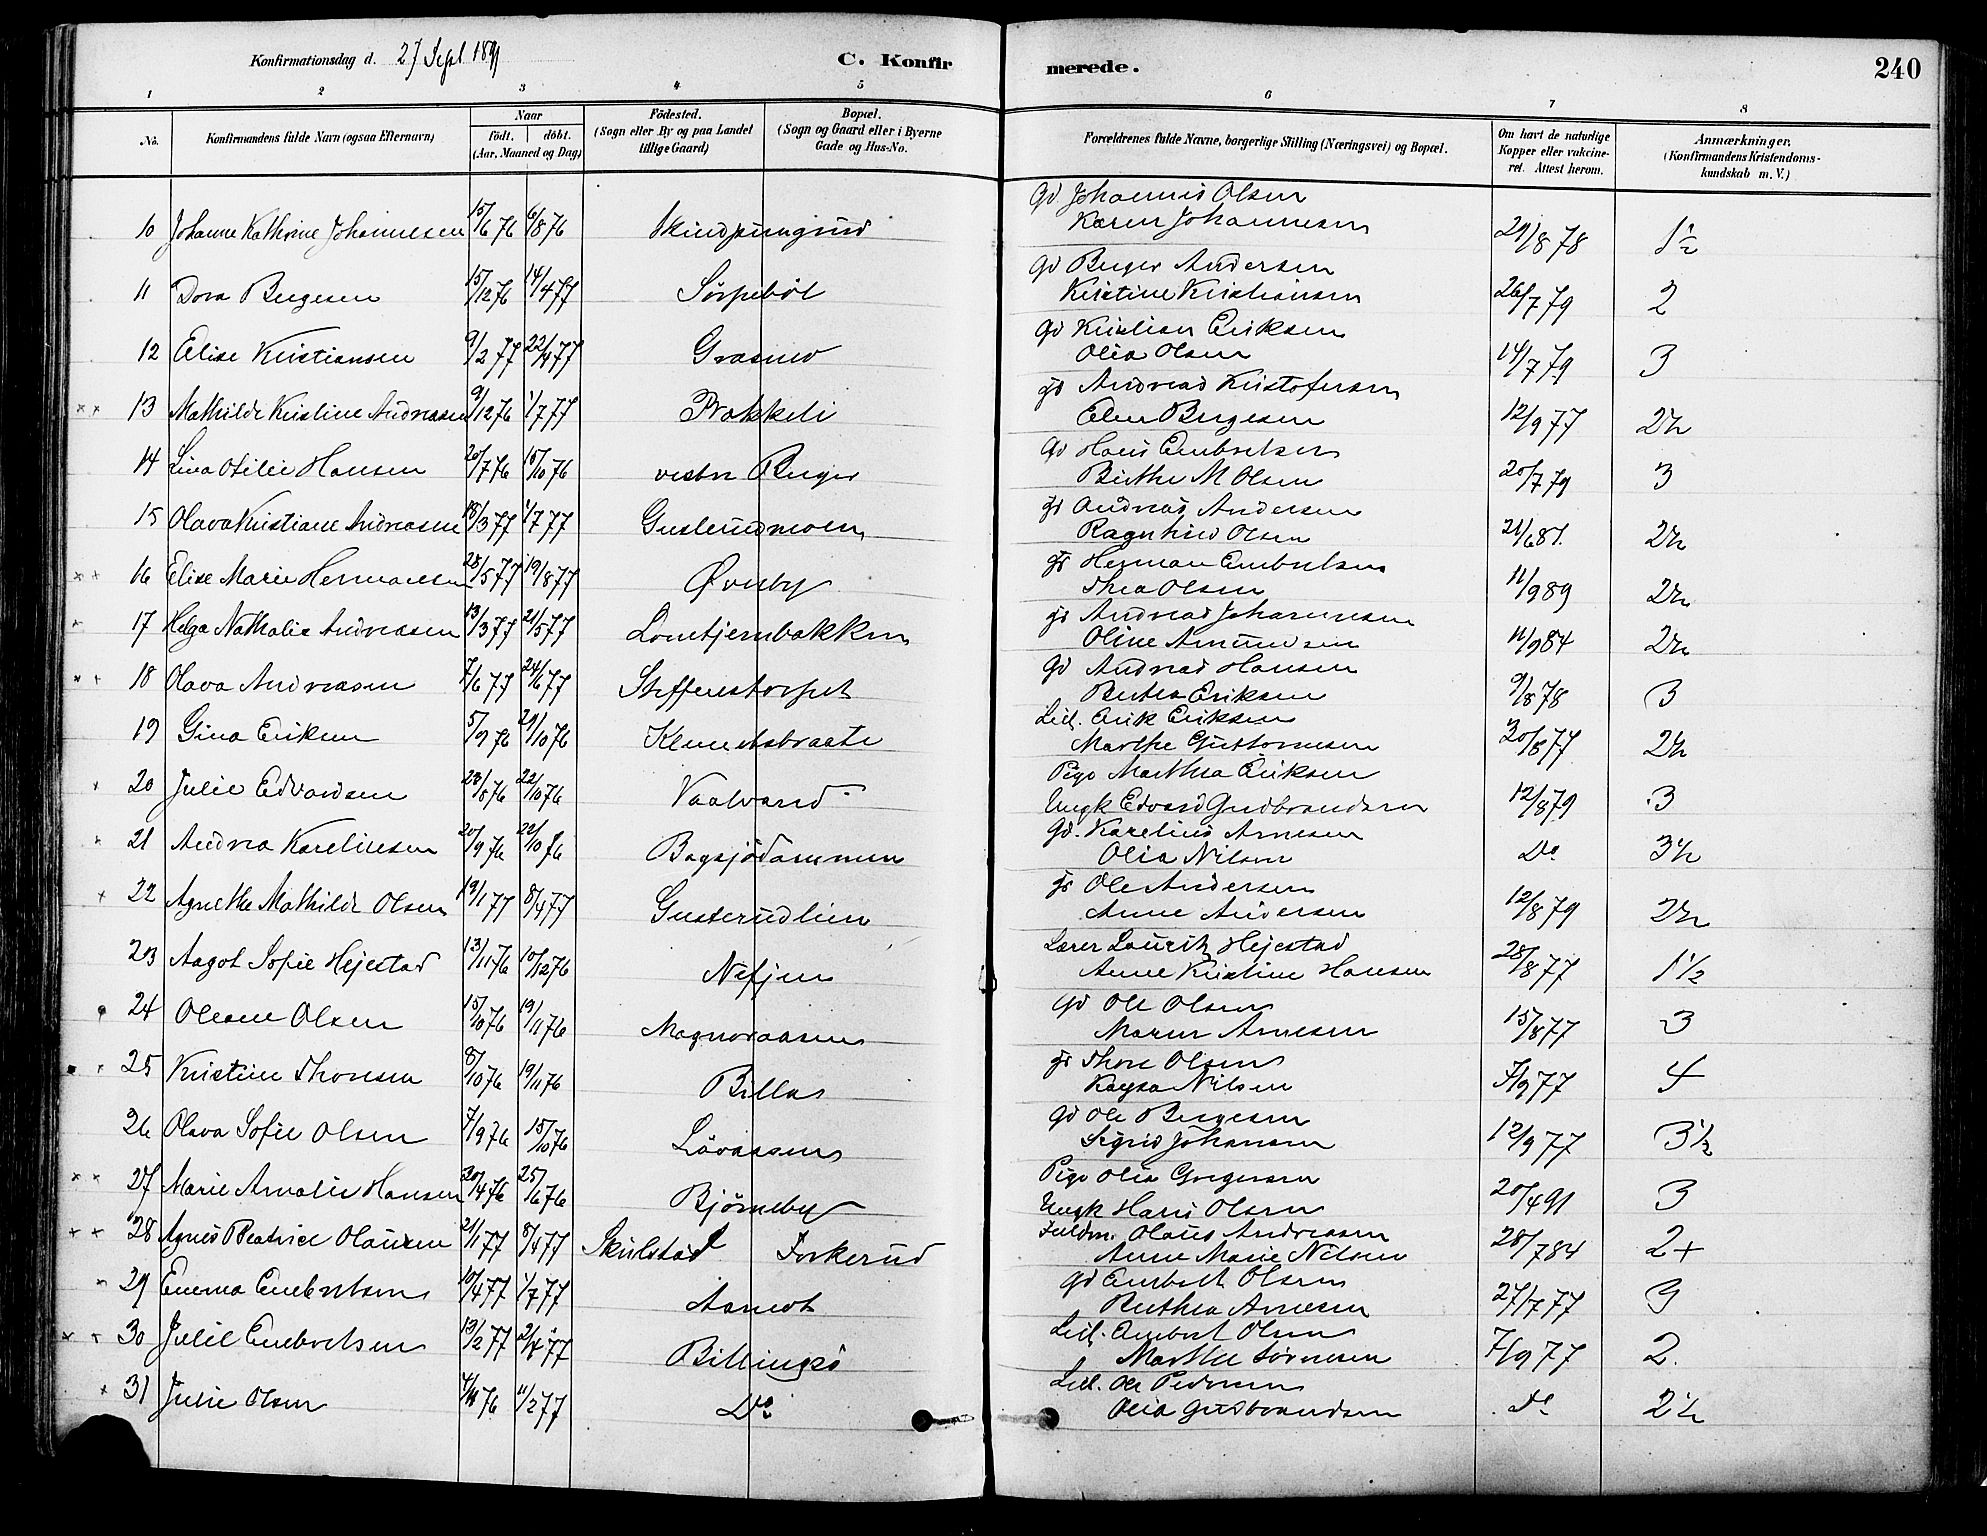 Konfirmationsdag d. 27 Sept 1891 C. Konfirmerede. 240
1 2 3 4 5 6 7 8
No. Konfirmandens fulde Navn (ogsaa Efternavn) Naar födt. döbt. (Aar, Maaned og Dag) Födested. (Sogn eller By og paa Landet tillige Gaard) Bopæl. (Sogn og Gaard eller i Byerne Gade og Hus-No. Forældrenes fulde Navne, borgerlige Stilling (Næringsvei) og Bopæl. Om havt de naturlige Kopper eller vakcineret. Attest herom. Anmærkninger. (Konfirmandens Kristendomskundskab m. V.)
Gd Johannes Olsen
10 Johanne Kathrine Johannesen 15/6 76 6/8 76 Skindpungrud Karen Johannesen 29/8 78 1½
Gd Berger Andersen
11 Dora Bergesen 15/12 76 14/4 77 Sörpeböl Kristine Kristiansen 26/7 79 2
Gd Kristian Eriksen
12 Elise Kristiansen 9/2 77 22/4 77 Grasmo Olia Olsen 14/7 79 3
Andreas Kristofersen
13 Mathilde Kristine Andreasen 9/12 76 1/7 77 Prakkeli Elen Bergesen 12/9 77 2½
Gd Hans Embretsen
14 Lina Otilie Hansen 20/7 76 15/10 76 vestre Berger Birthe M Olsen 20/7 79 3
Andreas Andersen
15 Olava Kristiane Andreasen 18/3 77 1/7 77 Gusterudmoen Ragnhild Olsen 21/6 81. 2½
Herman Embretsen
16 Elise Marie Hermansen 28/5 77 19/8 77 Øvesby Thea Olsen 11/9 89 2½
Andreas Johannesen
17 Helga Nathalie Andreasen 13/3 77 21/5 77 Lomtjernbakken Oline Amundsen 11/9 84 2½
Gd Andreas Hansen
18 Olava Andreasen 7/6 77 24/6 77 Steffenstorpet Berthea Eriksen 9/8 78 3
Leil. Erik Eriksen
19 Gina Eriksen 5/9 76 29/10 76 Klemetsbraate Marthe Guttormsen 20/8 77 2½
Pige Marthea Eriksen
20 Julie Edvardsen 23/8 76 22/10 76 Vaalvand Ungk Edvard Gudbrandsen 12/8 79 3
Gd. Karelius Arnesen
21 Andrea Kareliusen 20/9 76 22/10 76 Bagsjödammen Olia Nilsen Do 3½
Ole Andersen
22 Agnethe Mathilde Olsen 19/1 77 8/4 77 Gusterudlien Anne Andersen 12/8 79 2½
Lærer Lauritz Hejestad
23 Aagot Sofie Hejestad 13/11 76 10/12 76 Anne Kristine Hansen 28/8 77 1½
Gd Ole Olsen
24 Oleane Olsen 15/10 76 19/11 76 Magnoraasen Maren Arnesen 15/8 77 3
Thore Olsen
25 Kristine Thoresen 8/10 76 19/11 76 Billa Kaysa Nilsen 7/9 77 4
Gd Ole Bergesen
26 Olava Sofie Olsen 7/9 76 15/10 76 Lövaasen Sigrid Johansen 12/9 77 3½
Pige Olia Gregersen
27 Marie Amalie Hansen 30/4 76 25/6 76 Bjørneby Ungk Hans Olsen 20/4 91 3
Olaus Andreasen
28 Agnes Beatrice Olausen 21/1 77 8/4 77 Skulstad Torkerud Anne Marie Nilsen 28/7 84 2+
Gd Embret Olsen
29 Emma Embretsen 10/4 77 1/7 77 Aamot Berthea Arnesen 27/7 77 3
Leil. Embret Olsen
30 Julie Embretsen 13/2 77 2/4 77 Billingsö Marthe Sörnesen 7/9 77 2.
Leil. Ole Pedersen
31 Julie Olsen 4/11 76 11/2 77 Do Olia Gudbrandsen Do 2½